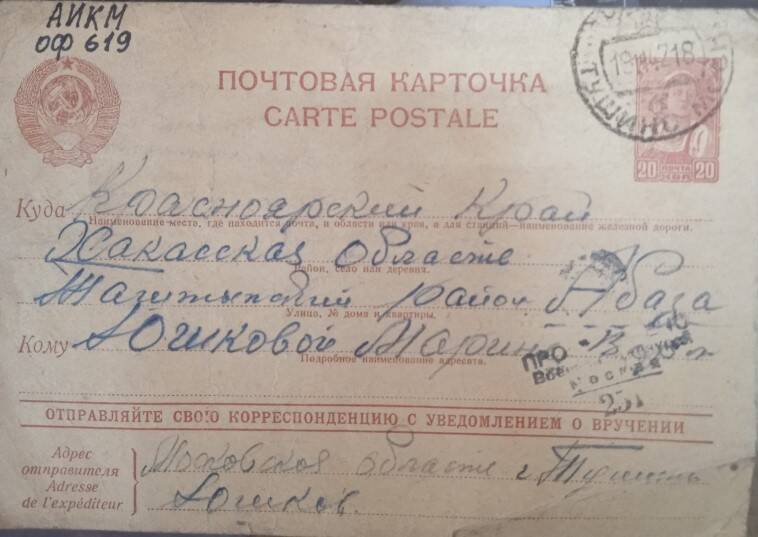 АИКМ
оф 619
ПОЧТОВАЯ КАРТОЧКА
CARTE POSTALE
20 ПОЧТА СССР 20
Куда Красноярский Край
Наименование места, где находится почта, и области или края, а для станций—наименование железной дороги.
Хакасская область
Район, село или деревня.
район Абаза
Улица, № дома и квартиры.
Кому Юшковой
Подробное наименование адресата.
ПРО
МОСКВА
251
ОТПРАВЛЯЙТЕ СВОЮ КОРРЕСПОНДЕНЦИЮ С УВЕДОМЛЕНИЕМ О ВРУЧЕНИИ
Адрес
отправителя
Adresse
de l'expéditeur
Московская область г.
Юшков.